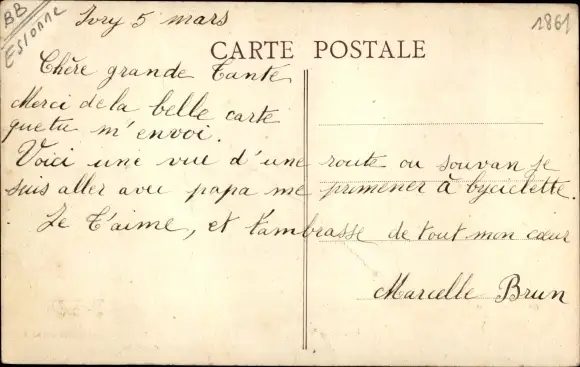 BB
ESSONNE
Ivry 5 mars
1861
CARTE POSTALE
Chère grande Tante
Merci de la belle carte
que tu m'envoi.
Voici une vue d'une route ou souvan je
suis aller avec papa me promener à byciclette.
Je t'aime, et t'ambrasse de tout mon cœur
Marcelle Brun